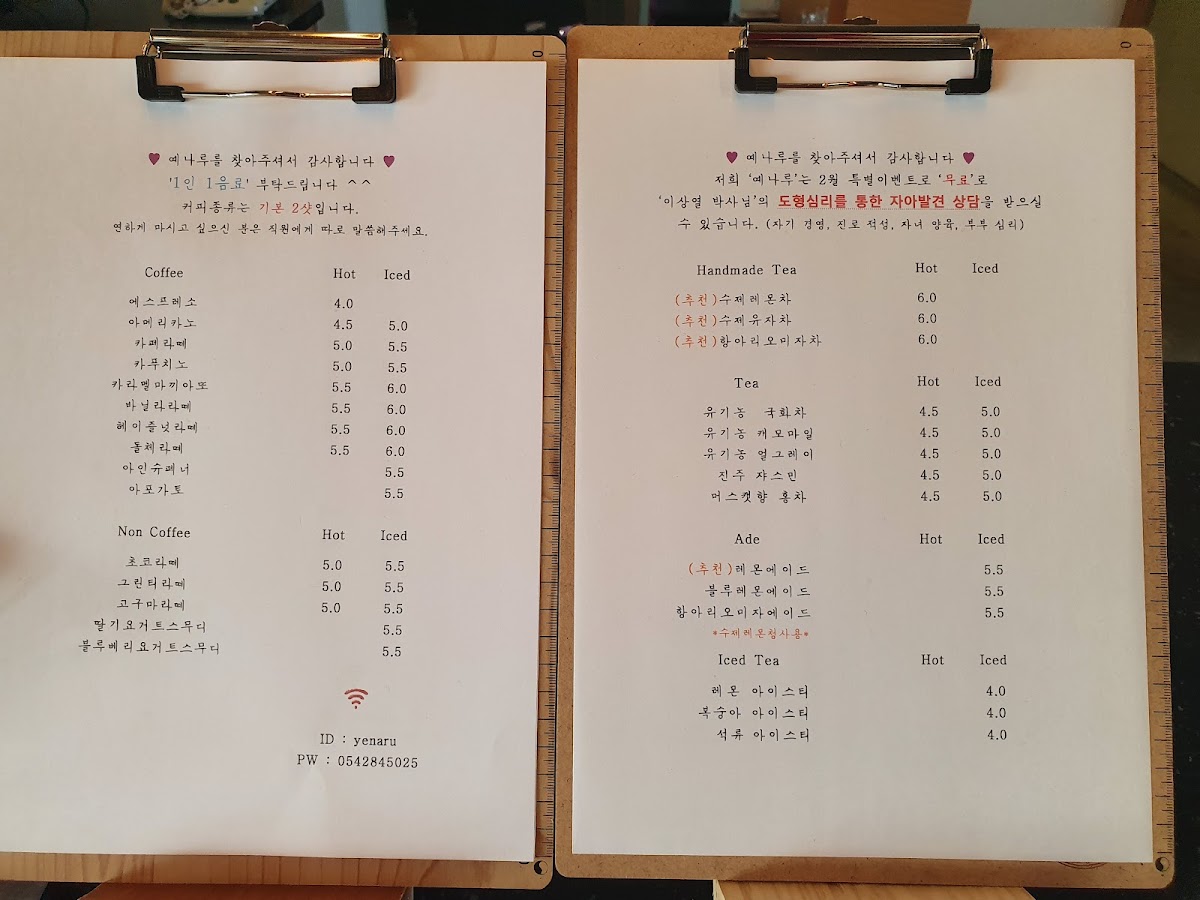 ♥ 예나루를 찾아주셔서 감사합니다 ♥
'1인 1음료' 부탁드립니다 ^^
커피종류는 기본 2샷입니다.
연하게 마시고 싶으신 분은 직원에게 따로 말씀해주세요.
Coffee Hot Iced
에스프레소 4.0
아메리카노 4.5 5.0
카페라떼 5.0 5.5
카푸치노 5.0 5.5
카라멜마끼아또 5.5 6.0
바닐라라떼 5.5 6.0
헤이즐넛라떼 5.5 6.0
돌체라떼 5.5 6.0
아인슈페너 5.5
아포가토 5.5
Non Coffee Hot Iced
초코라떼 5.0 5.5
그린티라떼 5.0 5.5
고구마라떼 5.0 5.5
딸기요거트스무디 5.5
블루베리요거트스무디 5.5
ID : yenaru
PW : 0542845025
♥ 예나루를 찾아주셔서 감사합니다 ♥
저희 '예나루'는 2월 특별이벤트로 '무료'로
'이상열 박사님'의 도형심리를 통한 자아발견 상담을 받으실
수 있습니다. (자기 경영, 진로 적성, 자녀 양육, 부부 심리)
Handmade Tea Hot Iced
(추천)수제레몬차 6.0
(추천)수제유자차 6.0
(추천)항아리오미자차 6.0
Tea Hot Iced
유기농 국화차 4.5 5.0
유기농 캐모마일 4.5 5.0
유기농 얼그레이 4.5 5.0
진주 쟈스민 4.5 5.0
머스캣향 홍차 4.5 5.0
Ade Hot Iced
(추천)레몬에이드 5.5
블루레몬에이드 5.5
항아리오미자에이드 5.5
*수제레몬청사용*
Iced Tea Hot Iced
레몬 아이스티 4.0
복숭아 아이스티 4.0
석류 아이스티 4.0